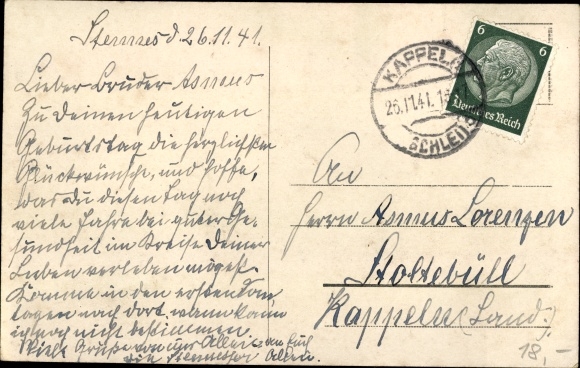 d. 26.11.41.
Lieber Bruder Asmus
Zu Deinen heutigen
Geburtstag die herzlichsten
Glückwünsche, und hoffe,
das Du diesen Tag noch
viele Jahre bei guter Ge-
sundheit im Kreise Deiner
Lieben verleben mögest.
Komme in den ersten
tagen nach dort, wann kann
ich noch nicht bestimmen.
Viele Grüße von uns Allen an Euch
Allen.
KAPPELN
26.11.41. 1
SCHLEI
6 6
Deutsches Reich
An
Herrn Asmus Lorenzen
Stoltebüll
Kappeln (Land.)
18,-